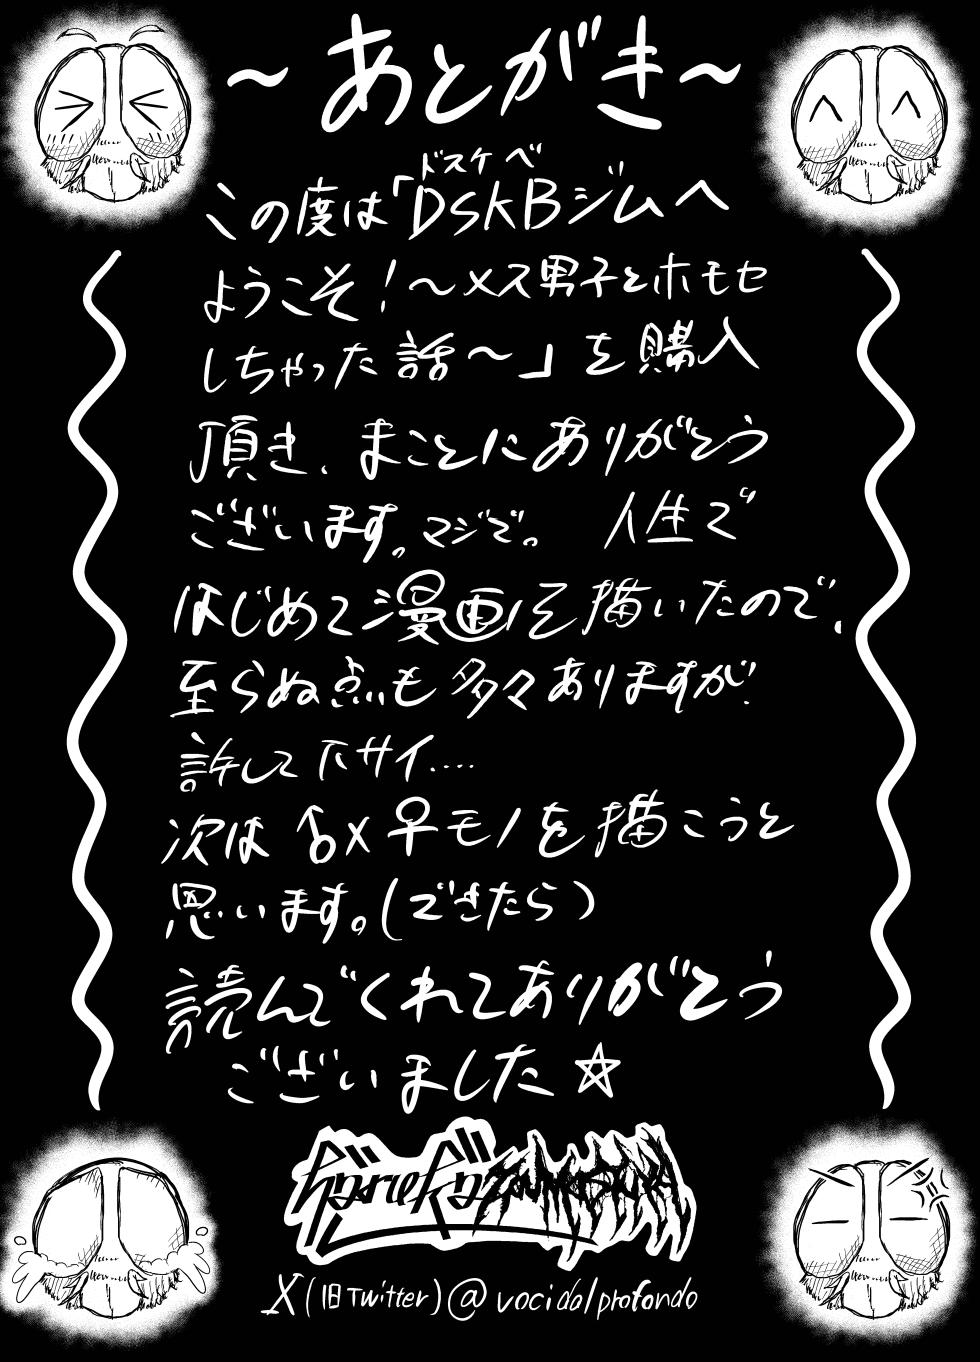 ～あとがき～
ドスケベ
この度は「DSKBジムへ
ようこそ！～メス男子とホモセ
しちゃった話～」を購入
頂き、まことにありがとう
ございます。マジで。 人生で
はじめて漫画を描いたので、
至らぬ点も多々ありますが
許して下サイ....
次は♂×♀モノを描こうと
思います。(できたら)
読んでくれてありがとう
ございました☆
X(旧Twitter)@vocidalprofondo